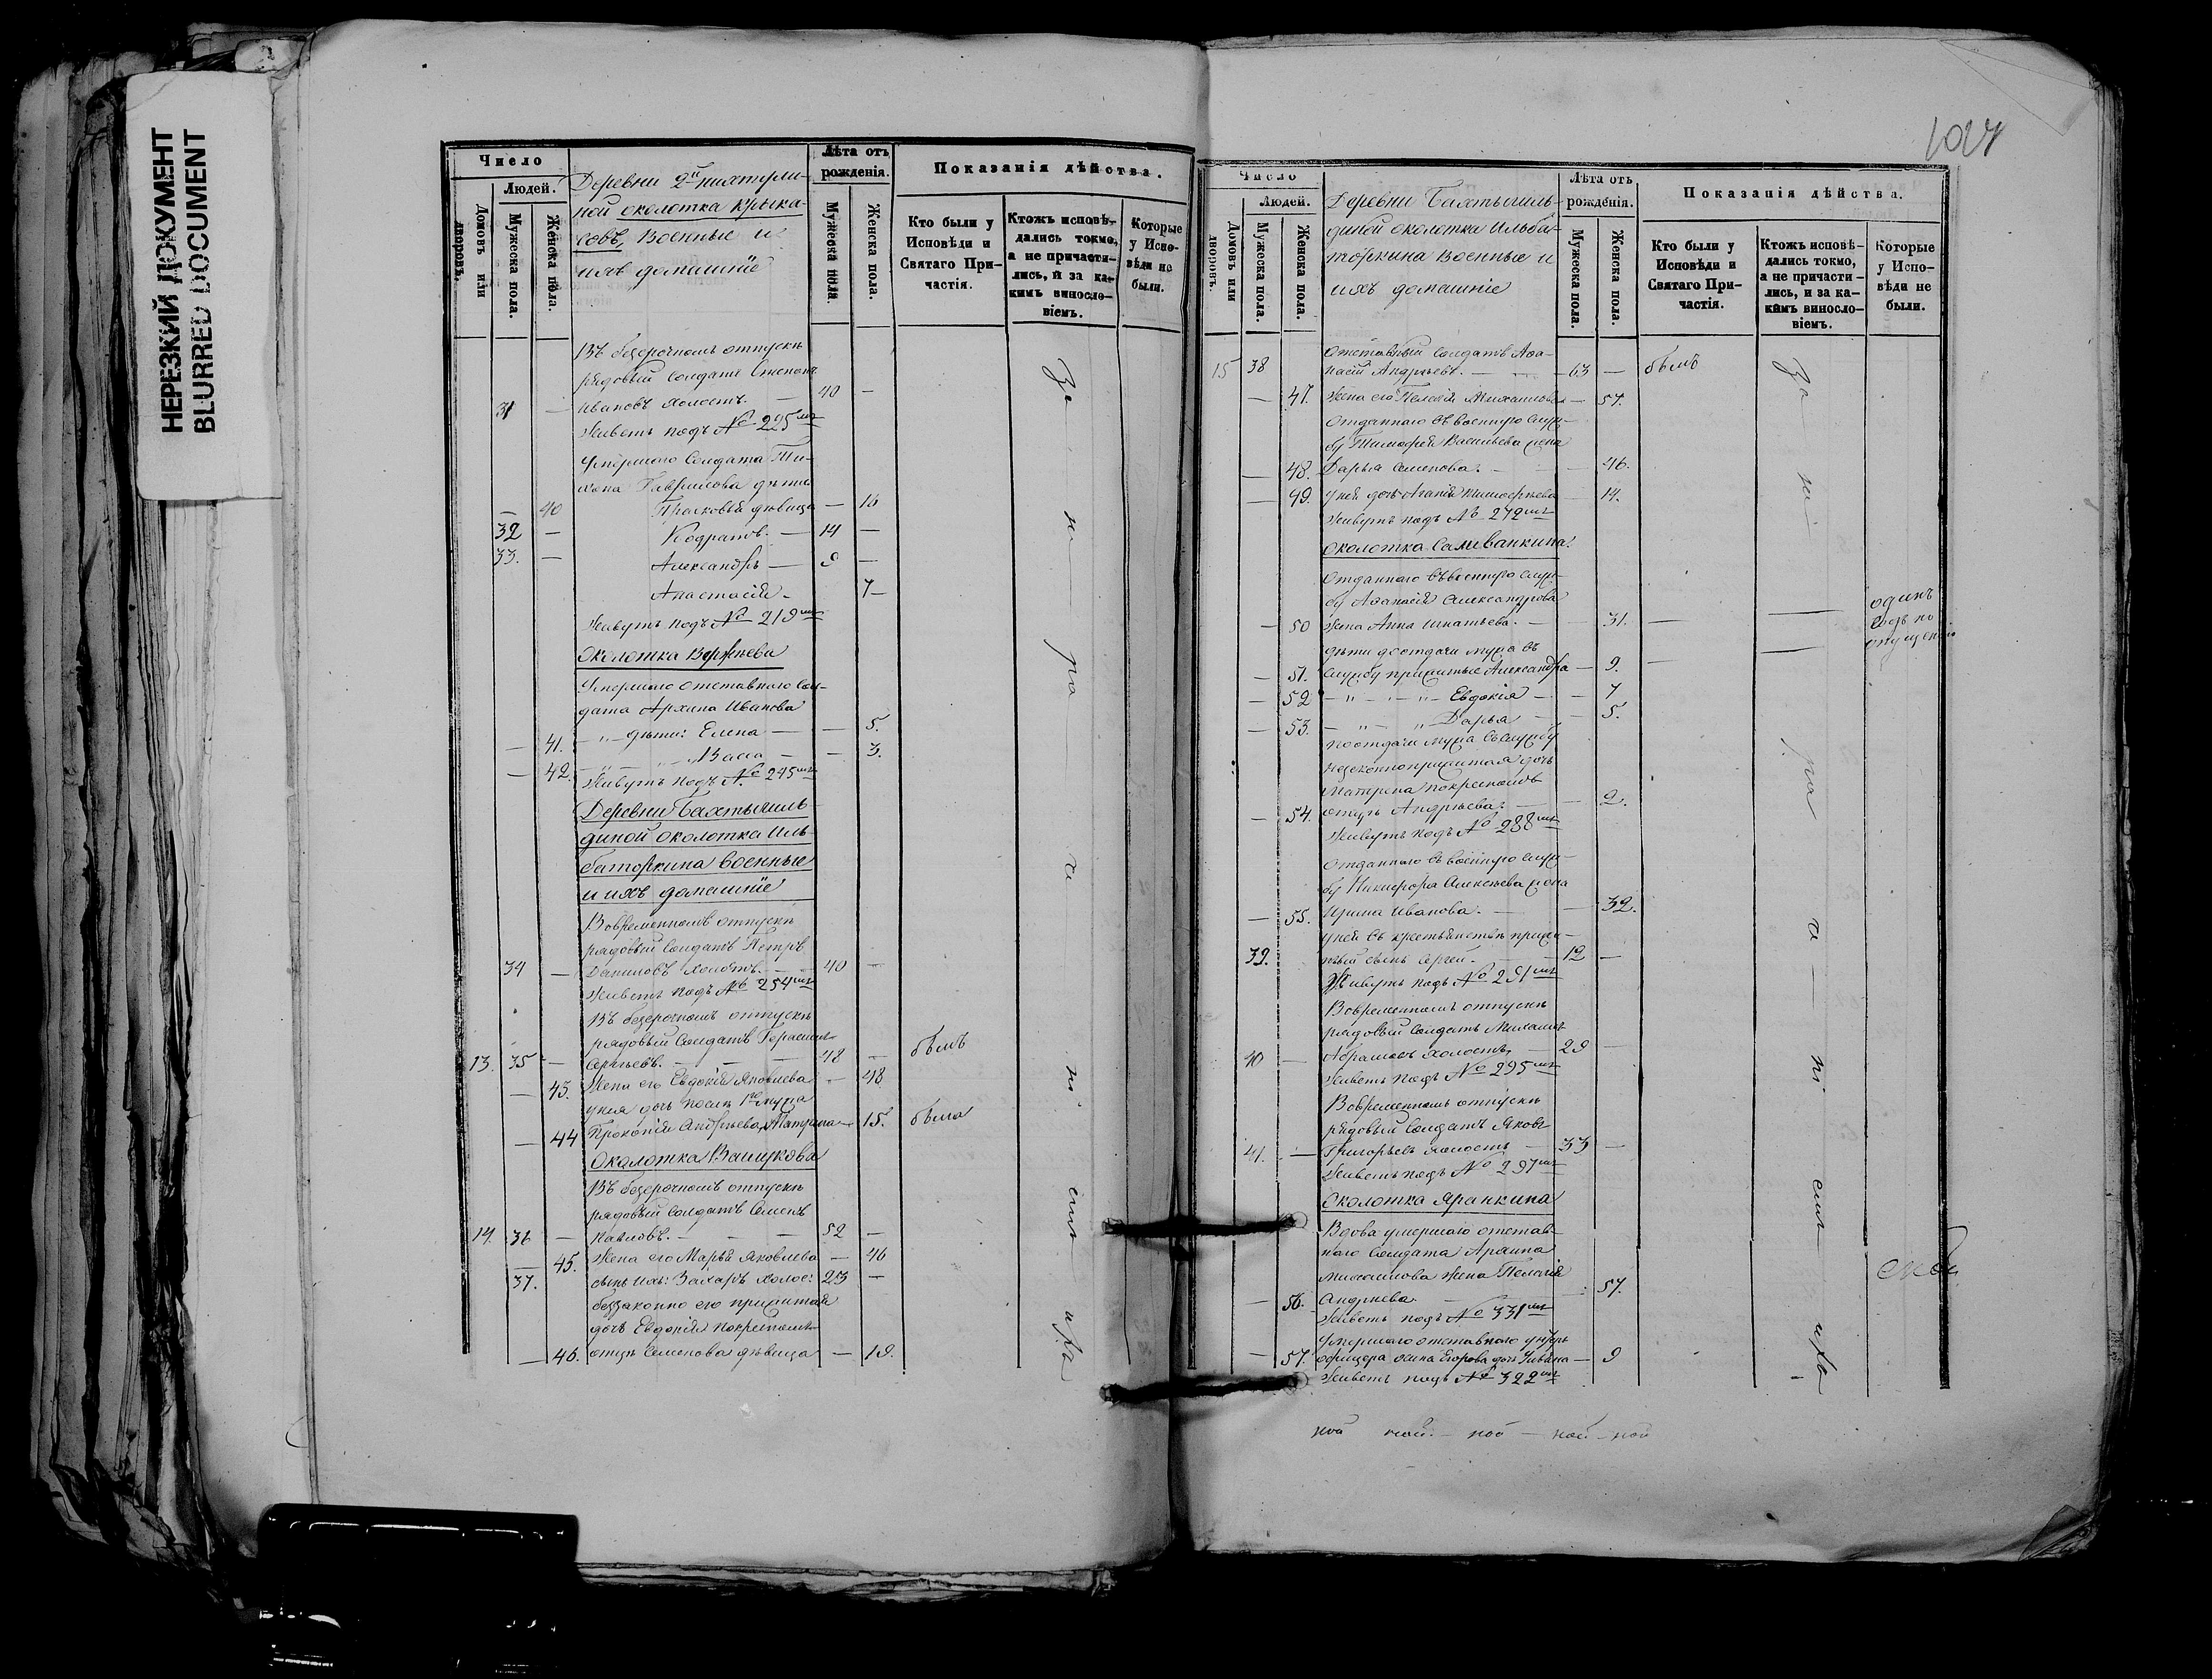 НЕРЕЗКИЙ ДОКУМЕНТ
BLURRED DOCUMENT
Число
Людей.
Домовъ или дворовъ.
Мужеска пола.
Женска пола.
Деревни 2й
ной околотка Крыка-
совъ, Военные и
ихъ домашніе
Лѣта отъ рожденія.
Мужеска пола.
Женска пола.
Показанія дѣйства.
Кто были у Исповѣди и Святаго Причастія.
Ктожъ исповѣ-
дались токмо,
а не причасти-
лись, и за ка-
кимъ винносло-
віемъ.
Которые
у Испо-
вѣди не
были.
Въ безсрочномъ отпуску
рядовый солдатъ Степанъ
31 — Ивановъ холостъ. — 40 —
Живетъ подъ № 225мъ
Умершаго Солдата Ти-
хона Гаврилова дѣти
— 40 Прасковья дѣвица — 16
32 — Кодратъ. — 14 —
33. — Александръ — 9 —
Анастасія — 7 —
Живутъ подъ № 219мъ
Околотка
Умершаго отставнаго Сол-
дата Архипа Иванова
— 41. — дѣти: Елена — — 5.
— 42. Васса — — 3.
Живутъ подъ № 245мъ
Деревни Бахтыгиль-
диной околотка Иль-
баторкина военные
и ихъ домашніе
Вовременномъ отпуску
рядовый Солдатъ Петръ
34 — Даниловъ холостъ. — 40 —
Живетъ подъ № 254мъ
Въ безсрочномъ отпуску
рядовый Солдатъ Герасимъ
13. 35 — Сергѣевъ. — — — 48 — былъ
— 43. Жена его Евдокія Яковлева — 48
у нея дочь послѣ 1го мужа
— 44 Прокопія Андреева, Матрона — 15. была
Околотка
Въ безсрочномъ отпуску
рядовый Солдатъ Семенъ
14. 36 — Павловъ. — — — 52 —
— 45. Жена его Марья Яковлева — 46
37. сынъ ихъ: Захаръ холос: 23 —
беззаконно его прижитая
дочь Евдокія покрестномъ
— 46. отцѣ Семенова дѣвица — 19.
Число
Людей.
Домовъ или дворовъ.
Мужеска пола.
Женска пола.
Деревни Бахтыгиль-
диной околотка Ильба-
торкина военные и
ихъ домашніе
Лѣта отъ рожденія.
Мужеска пола.
Женска пола.
Показанія дѣйства.
Кто были у Исповѣди и Святаго Причастія.
Ктожъ исповѣ-
дались токмо,
а не причасти-
лись, и за ка-
кимъ винносло-
віемъ.
Которые
у Испо-
вѣди не
были.
Отставный Солдатъ Афа-
15 38 насій Андреевъ. — — 63 — былъ
— 47. Жена его Пелагія Михаилова — 57.
Отданнаго въ военную служ-
бу Тимофея Васильева жена
— 48. Дарья Семенова. — — 46.
— 49. у ней дочь Агапія Тимофеева — 14.
Живутъ подъ № 272мъ
Околотка Селиванкина.
Отданнаго въ военную служ-
бу Афанасія Александрова
— 50 жена Анна Игнатьева. — 31. —
дѣти до отдачи мужа въ
— 51. службу прижитые Александра — 9. —
— 52 Евдокія — — 7
— 53. Дарья — — 5.
по отдачи мужа въ службу
незаконноприжитая дочь
Матрена покрестномъ
— 54. отцѣ Андреева. — — 2.
Живутъ подъ № 288мъ
Отданнаго въ военную служ-
бу Никифора Алексѣева жена
— 55. Ирина Иванова. — — 32.
у ней въ крестьянствѣ прижи-
39. тый сынъ Сергей. — 12 —
Живутъ подъ № 291мъ
Вовременномъ отпуску
рядовый Солдатъ Михаилъ
40 — Абрамовъ холостъ, — 29 —
Живетъ подъ № 295мъ
Вовременномъ отпуску
рядовый Солдатъ Яковъ
41. — Григорьевъ холостъ — 33 —
Живетъ подъ № 297мъ
Околотка Яранкина
Вдова умершаго отстав-
наго Солдата Архипа
Михаилова жена Пелагія
— 56. Андреева. — — 57.
Живетъ подъ № 331мъ
Умершаго отставнаго унтеръ
— 57. офицера Егорова дочь Ульяна — 9
Живетъ подъ № 322мъ
одинъ